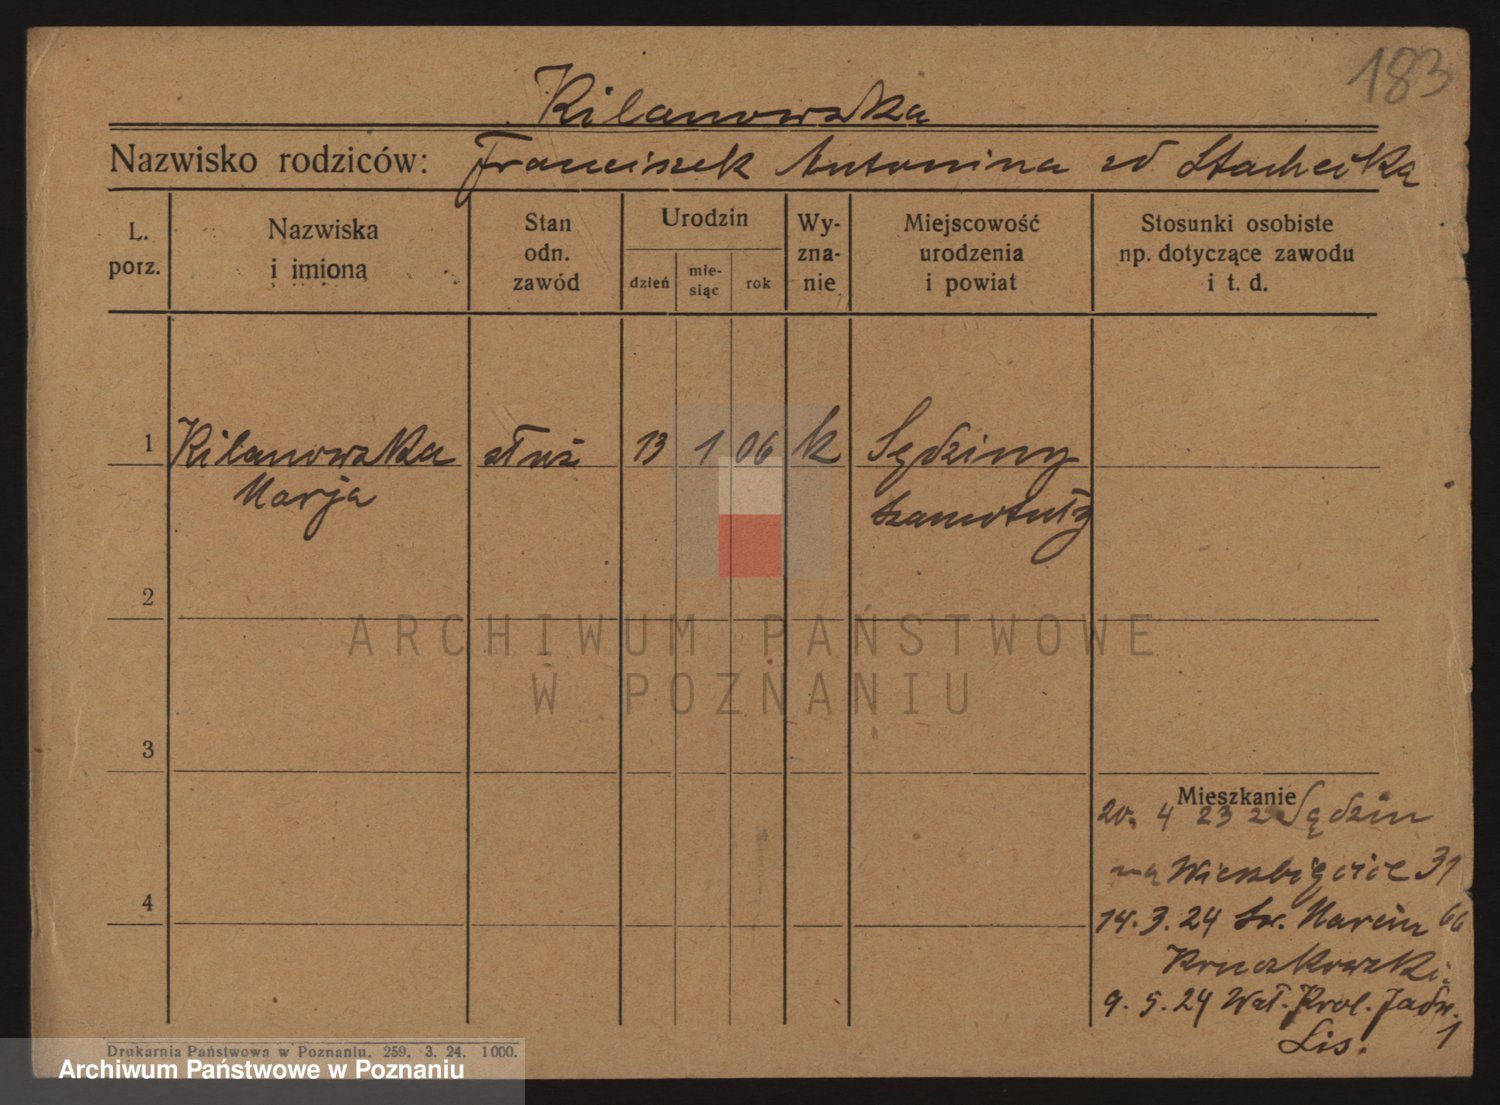 183
Kilanowska
Nazwisko rodziców: Franciszek Antonina zd Stachecka
L. porz.
Nazwiska i imiona
Stan odn. zawód
Urodzin
dzień
mie-
siąc
rok
Wy-
zna-
nie
Miejscowość urodzenia i powiat
Stosunki osobiste np. dotyczące zawodu i t. d.
1 Kilanowska służ 13 1 06 k Sędziny
Marja Szamotuły
2
ARCHIWUM PAŃSTWOWE
W POZNANIU
3
Mieszkanie
20. 4 23 z Sędzin
na Wierzbięcice 31
14. 3. 24 Św. Marcin 66
4
Kruczkowski.
9. 5. 24 Wał. Król. Jadw. 1
Lis.
Drukarnia Państwowa w Poznaniu. 259. 3. 24. 1000.
Archiwum Państwowe w Poznaniu